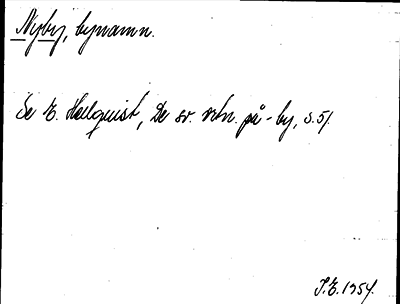 Nyby, bynamn.
Se E. Hellquist, De sv. ortn. på -by, s. 51.
J.E. 1954.